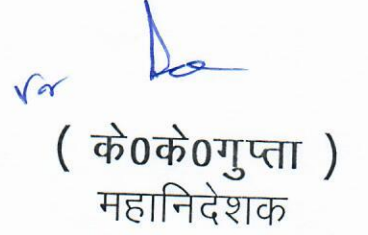 ( के0के0गुप्ता )
महानिदेशक